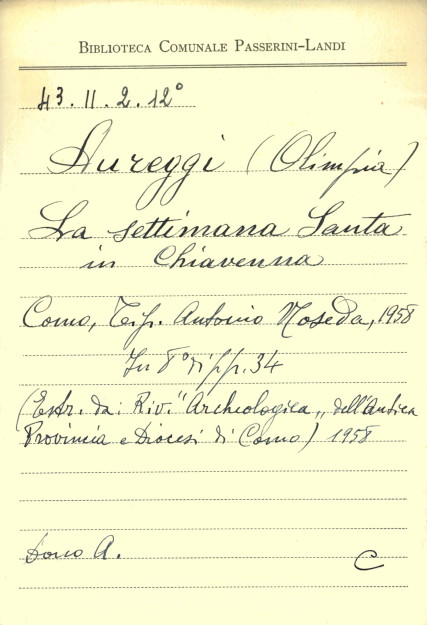 BIBLIOTECA COMUNALE PASSERINI-LANDI
43.II.2.12°
Aureggi (Olimpia)
La settimana Santa
in Chiavenna
Como, Tip. Antonio Noseda, 1958
In 8° di pp. 34
(Estr. da: Riv. "Archeologica„ dell'Antica
Provincia e Diocesi di Como) 1958
Dono A.
C